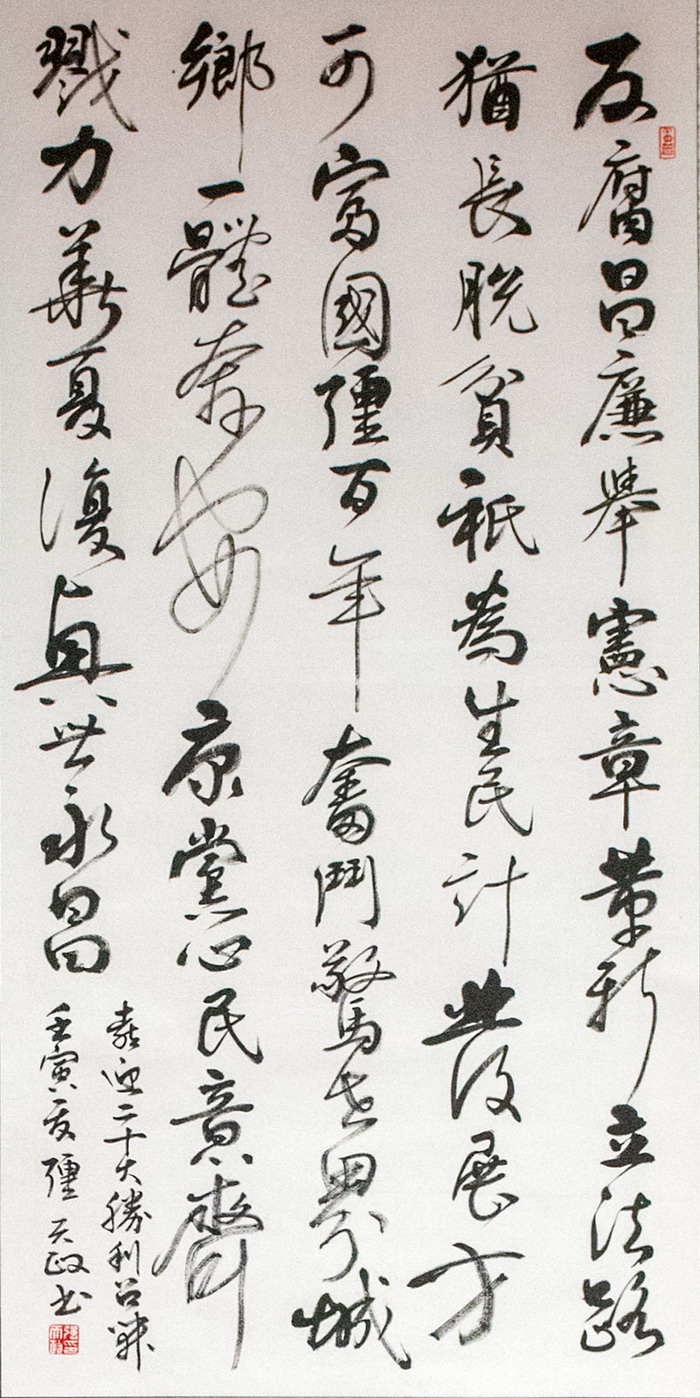 反腐昌廉舉憲章革新立法路
猶長脫貧祇為生民計發展方
可富國彊百年奮鬥驚世界城
鄉一體奔安康黨心民意齊
戮力華夏復興世永昌
喜迎二十大勝利召開
壬寅夏彊天政书